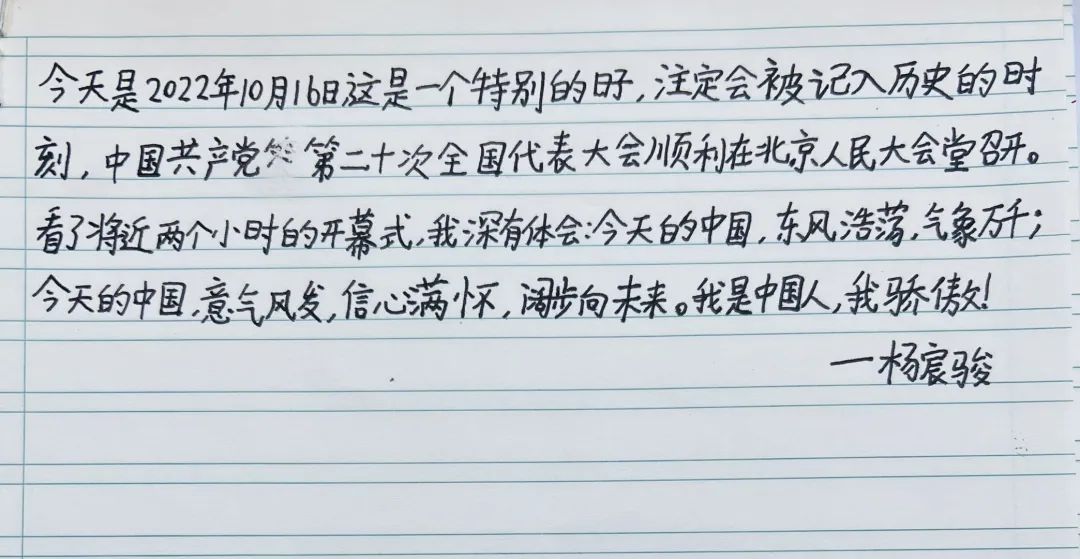 今天是2022年10月16日,这是一个特别的日子,注定会被记入历史的时
刻,中国共产党第二十次全国代表大会顺利在北京人民大会堂召开。
看了将近两个小时的开幕式,我深有体会:今天的中国,东风浩荡,气象万千;
今天的中国,意气风发,信心满怀,阔步向未来。我是中国人,我骄傲!
—杨宸骏